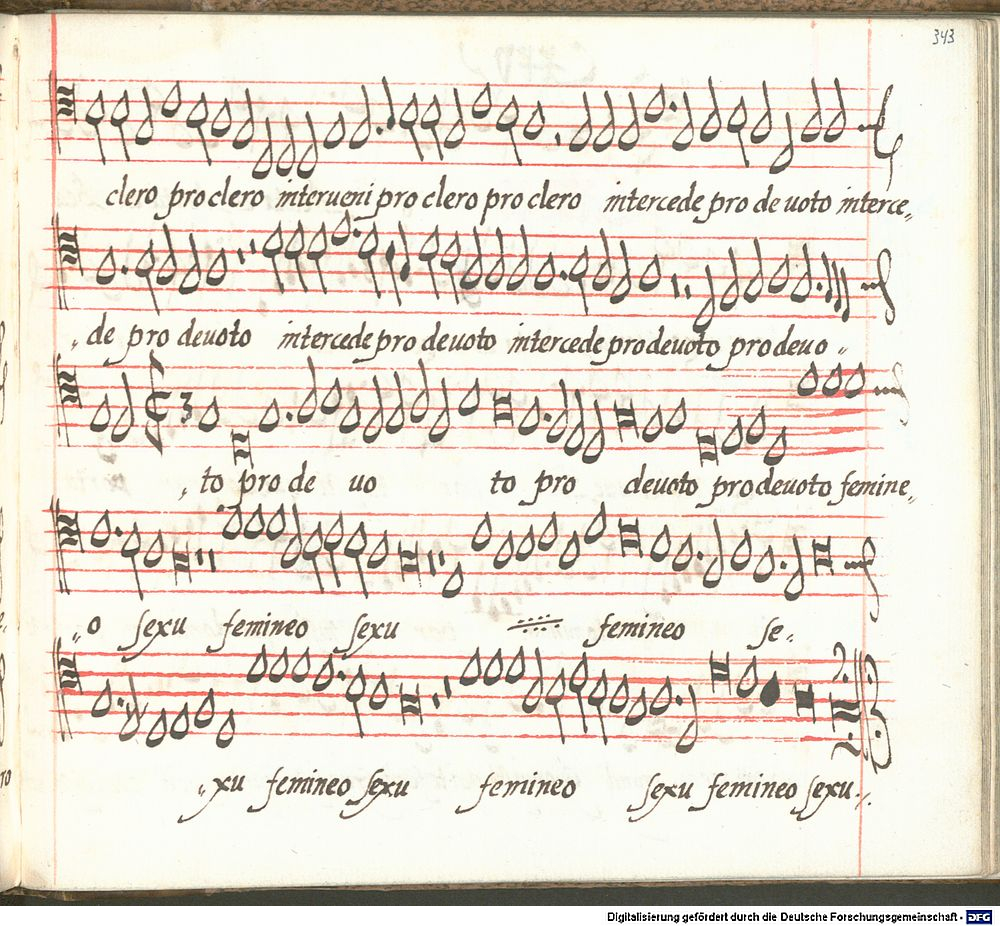 343
clero pro clero interueni pro clero pro clero intercede pro de uoto interce„
„de pro deuoto intercede pro deuoto intercede pro deuoto pro deuo„
3
„to pro de uo to pro deuoto pro deuoto femine„
„o sexu femineo sexu femineo se„
„xu femineo sexu femineo sexu femineo sexu.
Digitalisierung gefördert durch die Deutsche Forschungsgemeinschaft - DFG